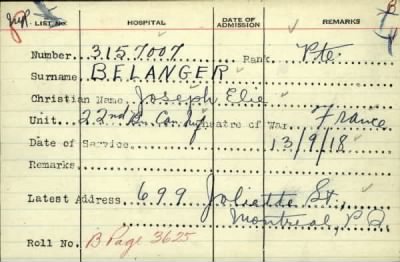 LIST No. HOSPITAL DATE OF ADMISSION REMARKS
Number 3157007 Rank Pte.
Surname BELANGER
Christian Name Joseph Elie
Unit 22nd Bn. Can. Inf. Theatre of War France
Date of Service 13/9/18
Remarks
Latest Address 699 Joliette St.,
Montreal, P.Q.
Roll No. B Page 3625